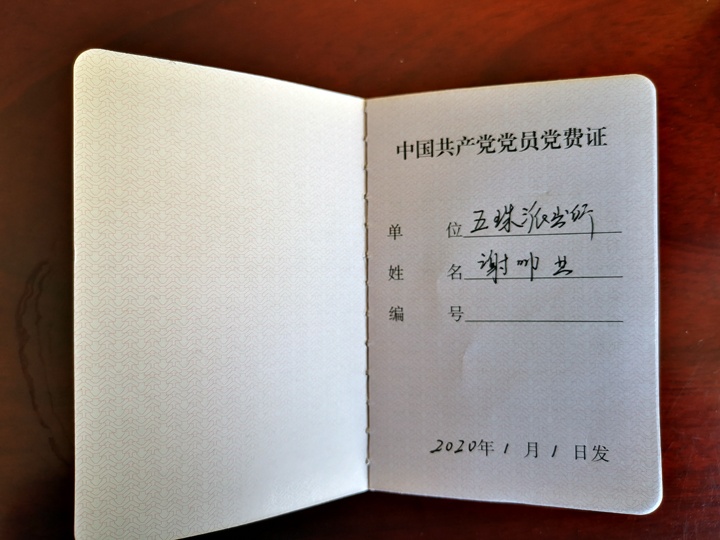 中国共产党党员党费证
单 位 五珠派出所
姓 名 谢帅共
编 号
2020年1月1日发